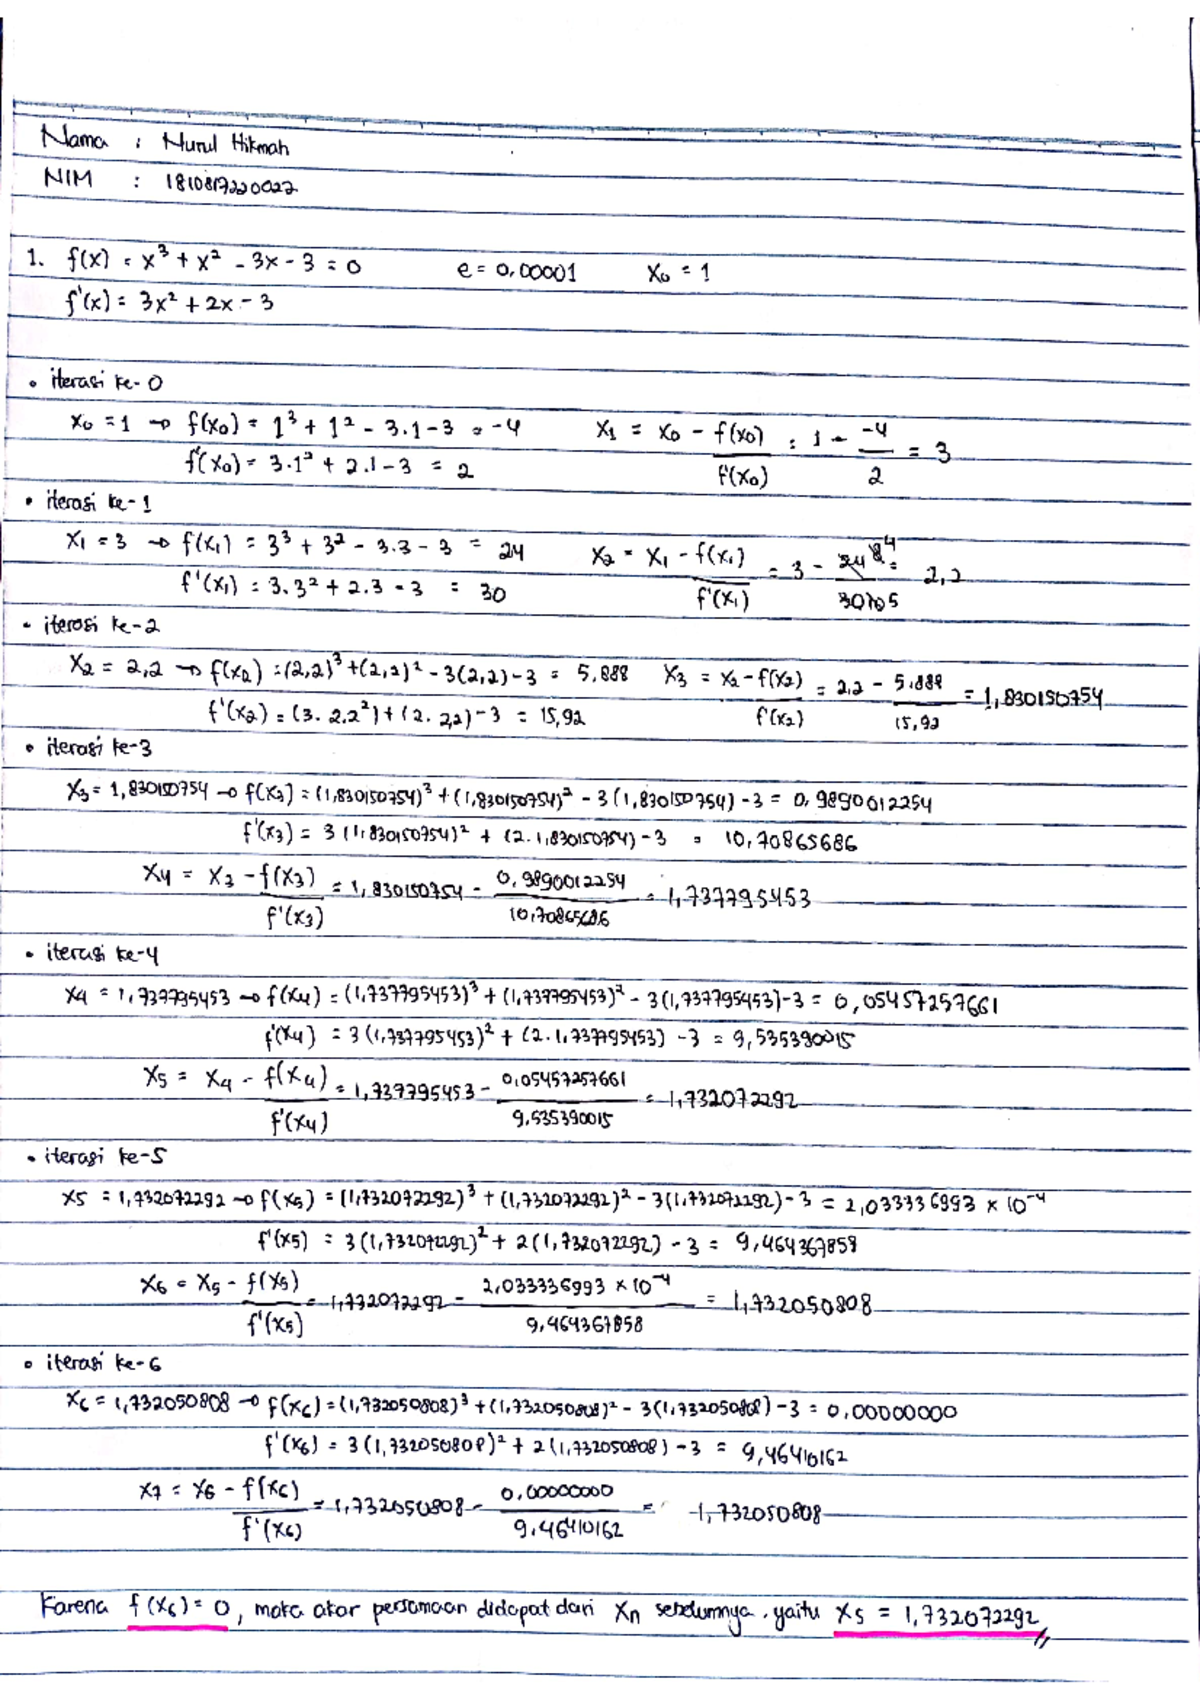 Nama : Nurul Hikmah
NIM : 1810817220027
1. f(x) = x³ + x² - 3x - 3 = 0 e = 0,00001 x₀ = 1
f'(x) = 3x² + 2x - 3
• iterasi ke-0
x₀ = 1 → f(x₀) = 1³ + 1² - 3.1 - 3 = -4 x₁ = x₀ - f(x₀)/f'(x₀) = 1 - -4/2 = 3
f'(x₀) = 3.1² + 2.1 - 3 = 2
• iterasi ke-1
x₁ = 3 → f(x₁) = 3³ + 3² - 3.3 - 3 = 24 x₂ = x₁ - f(x₁)/f'(x₁) = 3 - 24 8 4/30 10 5 = 2,2
f'(x₁) = 3.3² + 2.3 - 3 = 30
• iterasi ke-2
x₂ = 2,2 → f(x₂) = (2,2)³ + (2,2)² - 3(2,2) - 3 = 5.888 x₃ = x₂ - f(x₂)/f'(x₂) = 2,2 - 5.888/15,92 = 1,830150754
f'(x₂) = (3. 2,2²) + (2. 2,2) - 3 = 15,92
• iterasi ke-3
x₃ = 1,830150754 → f(x₃) = (1,830150754)³ + (1,830150754)² - 3(1,830150754) - 3 = 0,9890012254
f'(x₃) = 3(1,830150754)² + (2. 1,830150754) - 3 = 10,70865686
x₄ = x₃ - f(x₃)/f'(x₃) = 1,830150754 - 0,9890012254/10,70865686 = 1,737795453
• iterasi ke-4
x₄ = 1,737795453 → f(x₄) = (1,737795453)³ + (1,737795453)² - 3(1,737795453) - 3 = 0,05457257661
f'(x₄) = 3(1,737795453)² + (2. 1,737795453) - 3 = 9,535390015
x₅ = x₄ - f(x₄)/f'(x₄) = 1,737795453 - 0,05457257661/9,535390015 = 1,732072292
• iterasi ke-5
x₅ = 1,732072292 → f(x₅) = (1,732072292)³ + (1,732072292)² - 3(1,732072292) - 3 = 2,033336993 × 10⁻⁴
f'(x₅) = 3(1,732072292)² + 2(1,732072292) - 3 = 9,464367858
x₆ = x₅ - f(x₅)/f'(x₅) = 1,732072292 - 2,033336993 × 10⁻⁴/9,464367858 = 1,732050808
• iterasi ke-6
x₆ = 1,732050808 → f(x₆) = (1,732050808)³ + (1,732050808)² - 3(1,732050808) - 3 = 0,00000000
f'(x₆) = 3(1,732050808)² + 2(1,732050808) - 3 = 9,46410162
x₇ = x₆ - f(x₆)/f'(x₆) = 1,732050808 - 0,00000000/9,46410162 = 1,732050808
Karena f(x₆) = 0, maka akar persamaan didapat dari xₙ sebelumnya, yaitu x₅ = 1,732072292